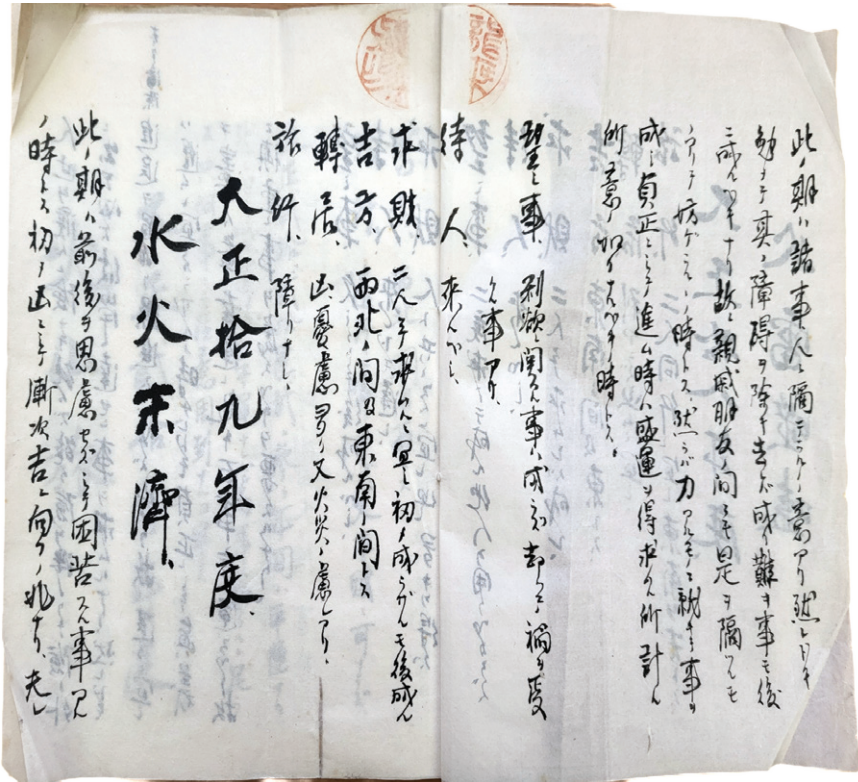 此ノ期ハ諸事人ニ隔テラルヽノ意アリ然レ𪜈
勉メテ其ノ障碍ヲ除キ去レバ成リ難キ事モ後
ニ成ルベキナリ故ニ親戚朋友ノ間ニモ是ヲ隔ツルモ
ノアリテ妨ゲラルヽノ時トス、然レバ力
成シ貞正ニシテ進ム時ハ盛運ヲ得求ル所計ル
所ノ意ノ如クナルベキ時トス。
望ミ事 利欲ニ関スル事ハ成ラズ却ツテ禍ヲ受
ル事アリ、
待人、来ルベシ、
求財、二人ニテ求ルニ宜シ初メ成ラザルモ後成ル
吉方、西北ノ間及東南ノ間トス
轉居、凶、憂慮アリ又火災ノ慮レアリ、
旅行、障リナシ、
大正拾九年度、
水火未濟、
此ノ期ハ前後ヲ思慮セズシテ困苦スル事アル
ノ時トス初メ凶ニシテ漸次吉ニ向フノ兆ナリ、